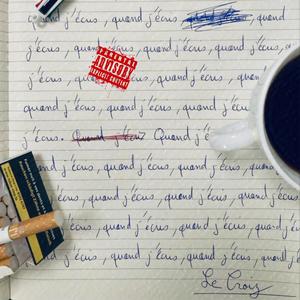 quand j'écris, quand j'écris, quand
j'écris, quand j'écris, quand j'écris, quand j'écris,
PARENTAL
ADVISORY
EXPLICIT CONTENT
quand j'écris, quand j'écris, quand
quand j'écris, quand j'écris, quand
j'écris. Quand j'écris? Quand
j'écris, quand j'écris, quand j'écris, quand j'écris,
j'écris, quand j'écris, quand j'écris, quand j'écris
j'écris, quand j'écris, quand j'écris,
quand j'écris, quand j'écris, quand j'écris,
quand j'écris, quand j'écris, quand j'écris, quand
Le Croy